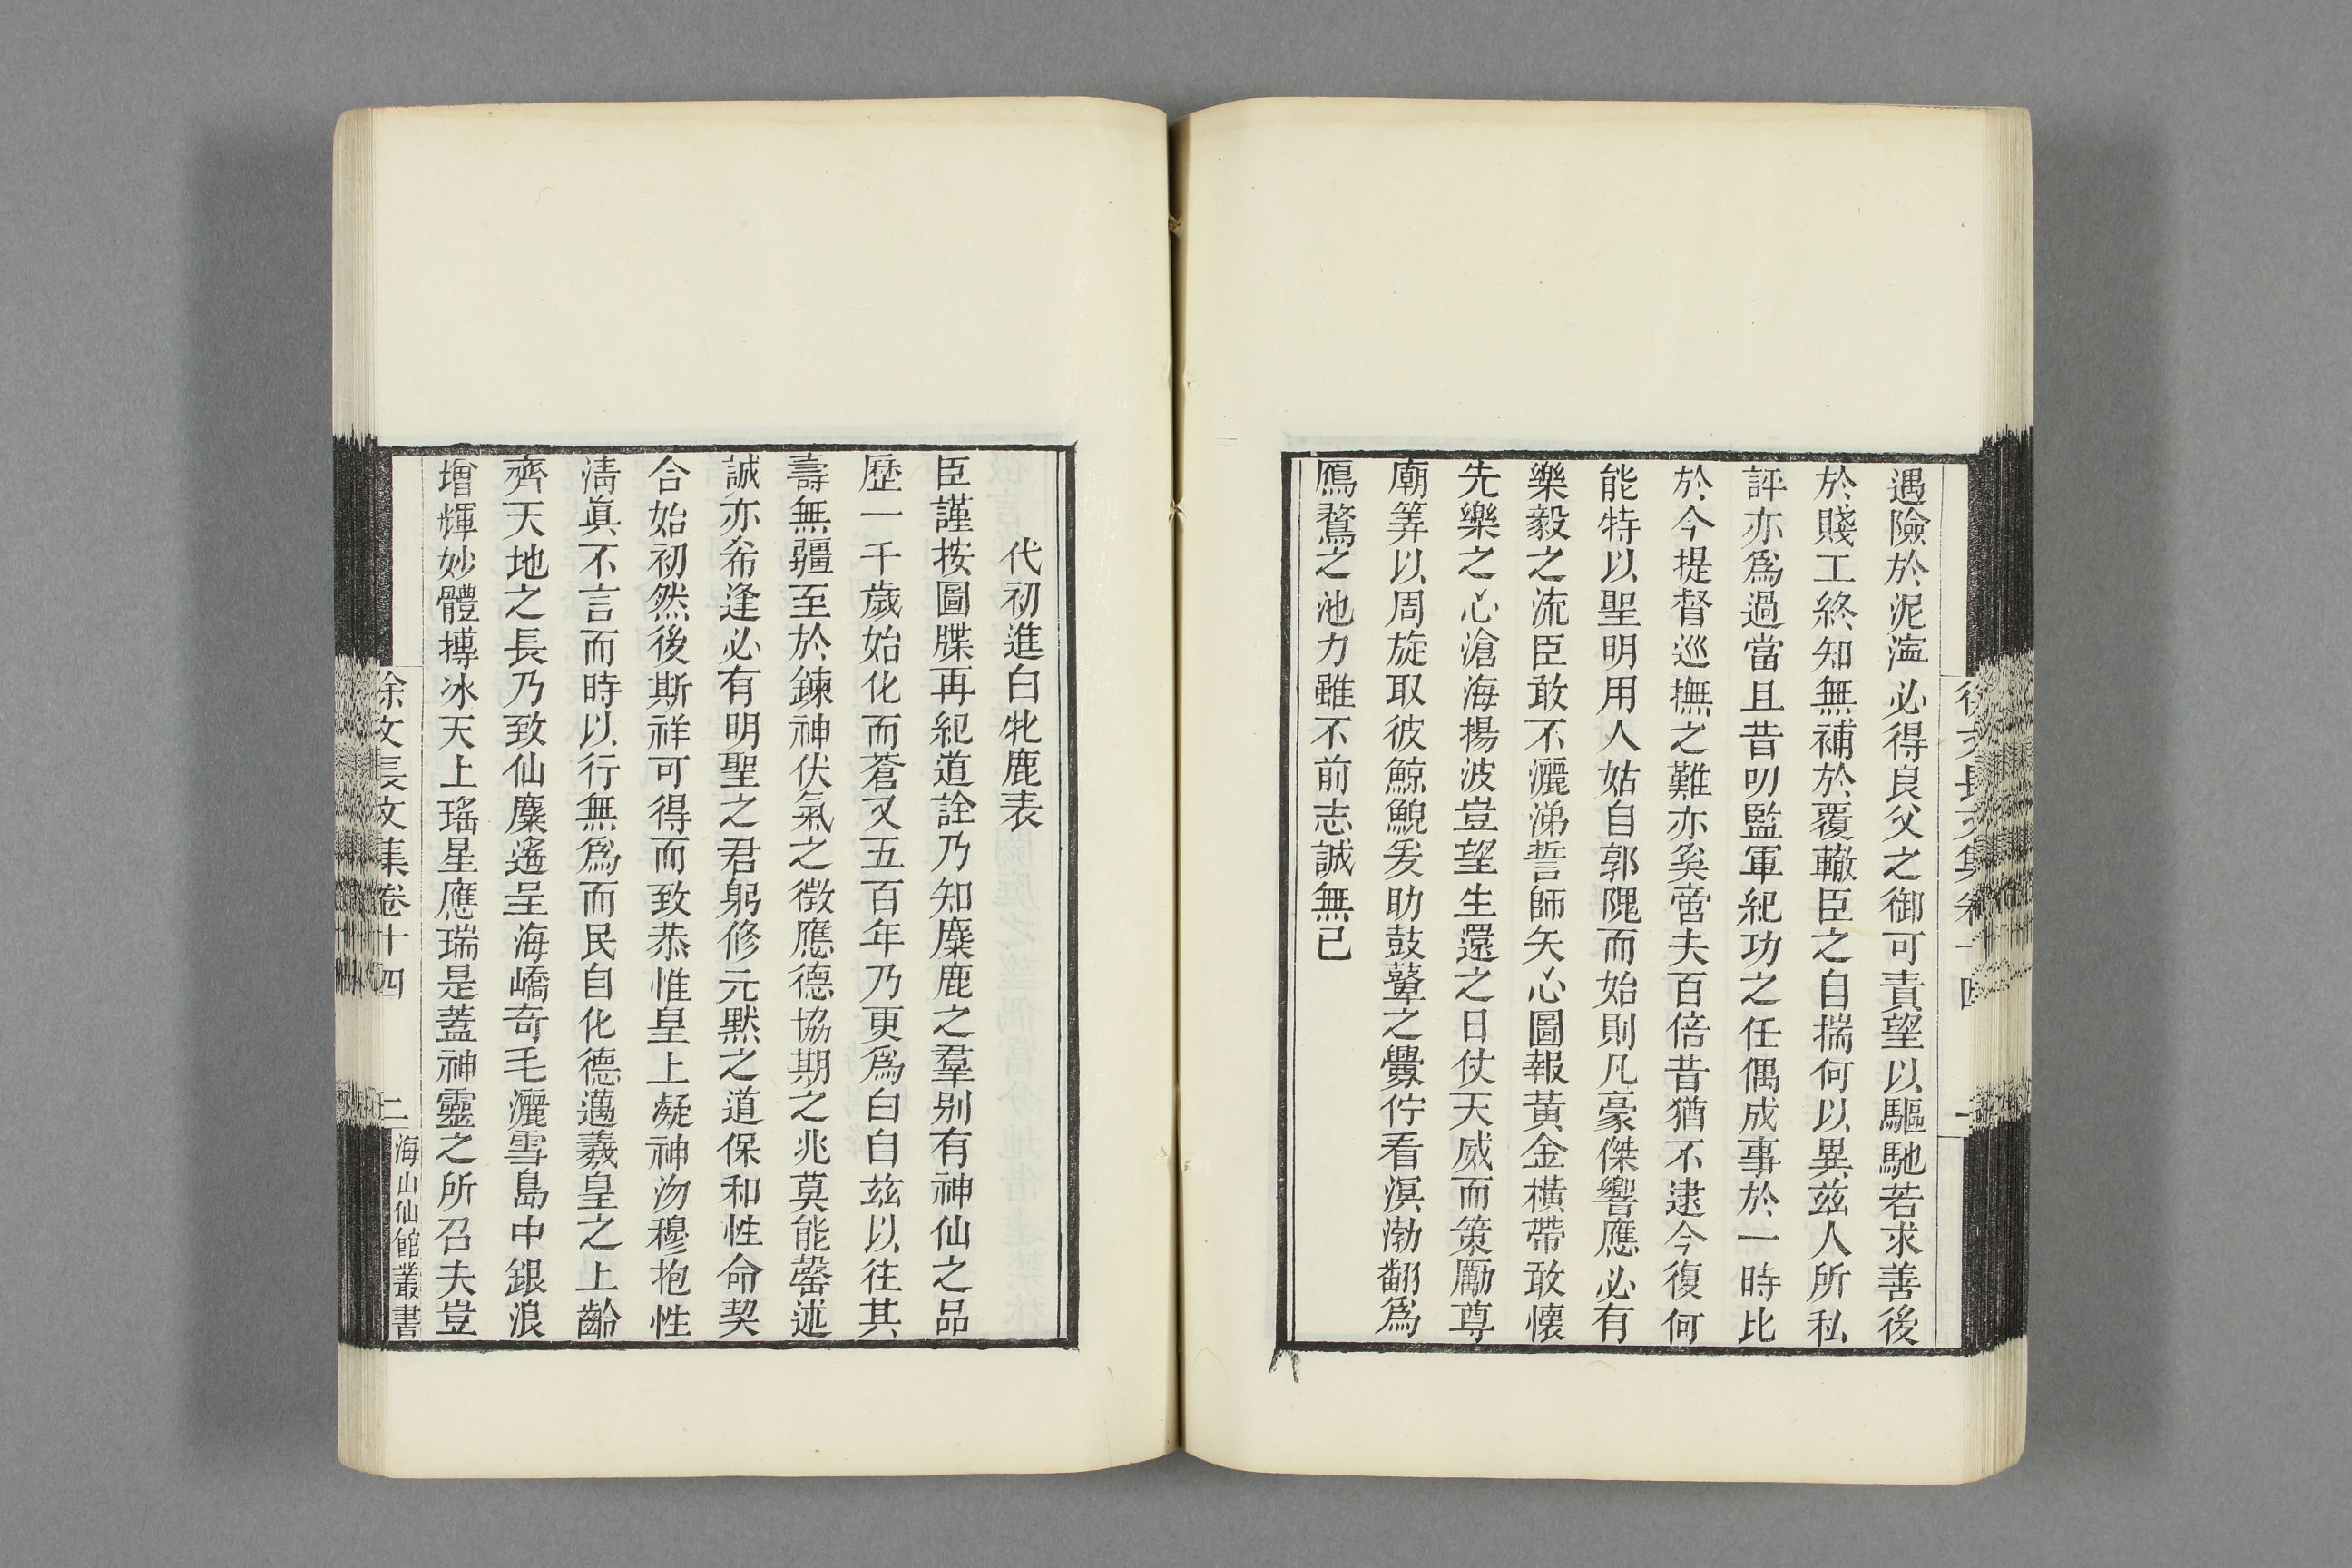 遇險於泥濘必得良父之御可責望以驅馳若求善後
於賤工終知無補於覆轍臣之自揣何以異兹人所私
評亦爲過當且昔叨監軍紀功之任偶成事於一時比
於今提督巡撫之難亦奚啻夫百倍昔猶不逮今復何
能特以聖明用人姑自郭隗而始則凡豪傑響應必有
樂毅之流臣敢不灑涕誓師矢心圖報黃金橫帶敢懷
先樂之心滄海揚波豈望生還之日仗天威而策勵尊
廟筭以周旋取彼鯨鯢爰助鼓鼙之釁佇看溟渤翻爲
鴈鶩之池力雖不前志誠無已
代初進白牝鹿表
臣謹按圖牒再紀道詮乃知麋鹿之羣别有神仙之品
歷一千歲始化而蒼又五百年乃更爲白自兹以往其
壽無疆至於鍊神伏氣之徵應德協期之兆莫能罄述
誠亦希逢必有明聖之君躬修元默之道保和性命契
合始初然後斯祥可得而致恭惟皇上凝神沕穆抱性
淸眞不言而時以行無爲而民自化德邁羲皇之上齡
齊天地之長乃致仙麋遙呈海嶠奇毛灑雪島中銀浪
增輝妙體摶冰天上瑤星應瑞是蓋神靈之所召夫豈
徐文長文集卷十四
二
海山仙館叢書